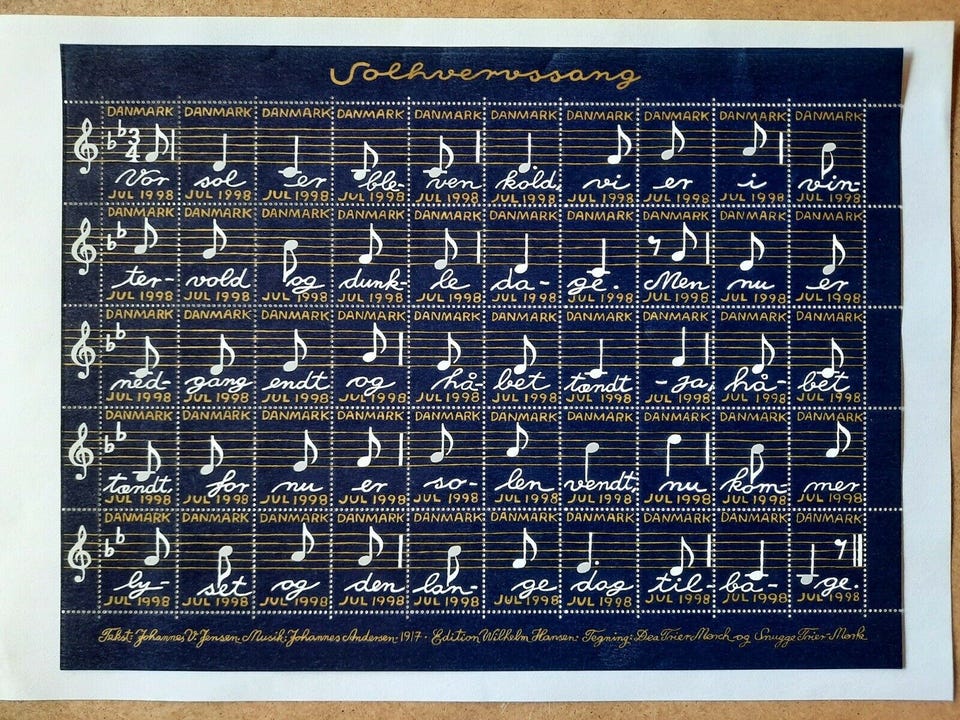 Solhvervssang
DANMARK DANMARK DANMARK DANMARK DANMARK DANMARK DANMARK DANMARK DANMARK DANMARK
3
4
Vor sol er ble- ven kold, vi er i vin-
JUL 1998 JUL 1998 JUL 1998 JUL 1998 JUL 1998 JUL 1998 JUL 1998 JUL 1998 JUL 1998 JUL 1998
DANMARK DANMARK DANMARK DANMARK DANMARK DANMARK DANMARK DANMARK DANMARK DANMARK
ter- vold og dunk- le da- ge. Men nu er
JUL 1998 JUL 1998 JUL 1998 JUL 1998 JUL 1998 JUL 1998 JUL 1998 JUL 1998 JUL 1998 JUL 1998
DANMARK DANMARK DANMARK DANMARK DANMARK DANMARK DANMARK DANMARK DANMARK DANMARK
ned- gang endt og hå- bet tændt - ja, hå- bet
JUL 1998 JUL 1998 JUL 1998 JUL 1998 JUL 1998 JUL 1998 JUL 1998 JUL 1998 JUL 1998 JUL 1998
DANMARK DANMARK DANMARK DANMARK DANMARK DANMARK DANMARK DANMARK DANMARK DANMARK
tændt for nu er so- len vendt, nu kom mer
JUL 1998 JUL 1998 JUL 1998 JUL 1998 JUL 1998 JUL 1998 JUL 1998 JUL 1998 JUL 1998 JUL 1998
DANMARK DANMARK DANMARK DANMARK DANMARK DANMARK DANMARK DANMARK DANMARK DANMARK
ly- set og den lan- ge dag til- ba- ge.
JUL 1998 JUL 1998 JUL 1998 JUL 1998 JUL 1998 JUL 1998 JUL 1998 JUL 1998 JUL 1998 JUL 1998
Tekst: Johannes V. Jensen. Musik: Johannes Andersen 1917. Edition Wilhelm Hansen. Tegning: Dea Trier Mørch og Snugge Trier Mørk